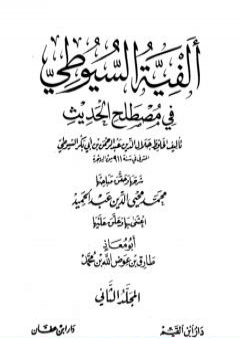 ألفية السيوطي
في مصطلح الحديث
تأليف الحافظ جلال الدين عبد الرحمن بن أبي بكر السيوطي
المتوفى في سنة ٩١١ من الهجرة
شرح
محمد محيي الدين عبد الحميد
أبو معاذ
طارق بن عوض الله بن محمد
المجلد الثاني
دار ابن القيم
دار ابن عفان